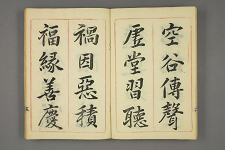 空谷傳聲
虛堂習聽
禍因惡積
福緣善慶